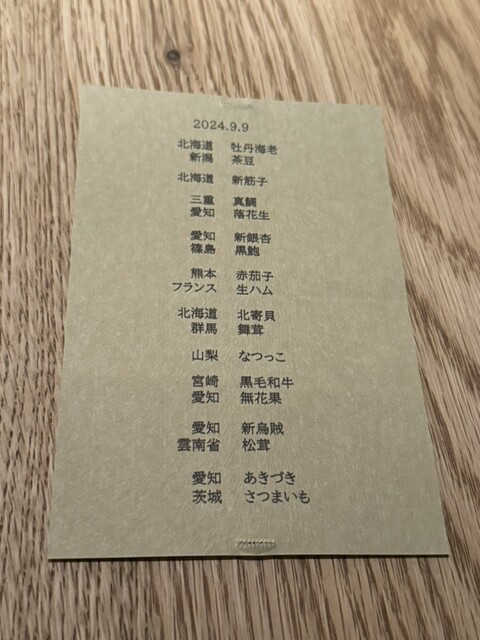 2024.9.9
北海道 牡丹海老
新潟 茶豆
北海道 新筋子
三重 真鯛
愛知 落花生
愛知 新銀杏
篠島 黒鮑
熊本 赤茄子
フランス 生ハム
北海道 北寄貝
群馬 舞茸
山梨 なつっこ
宮崎 黒毛和牛
愛知 無花果
愛知 新烏賊
雲南省 松茸
愛知 あきづき
茨城 さつまいも